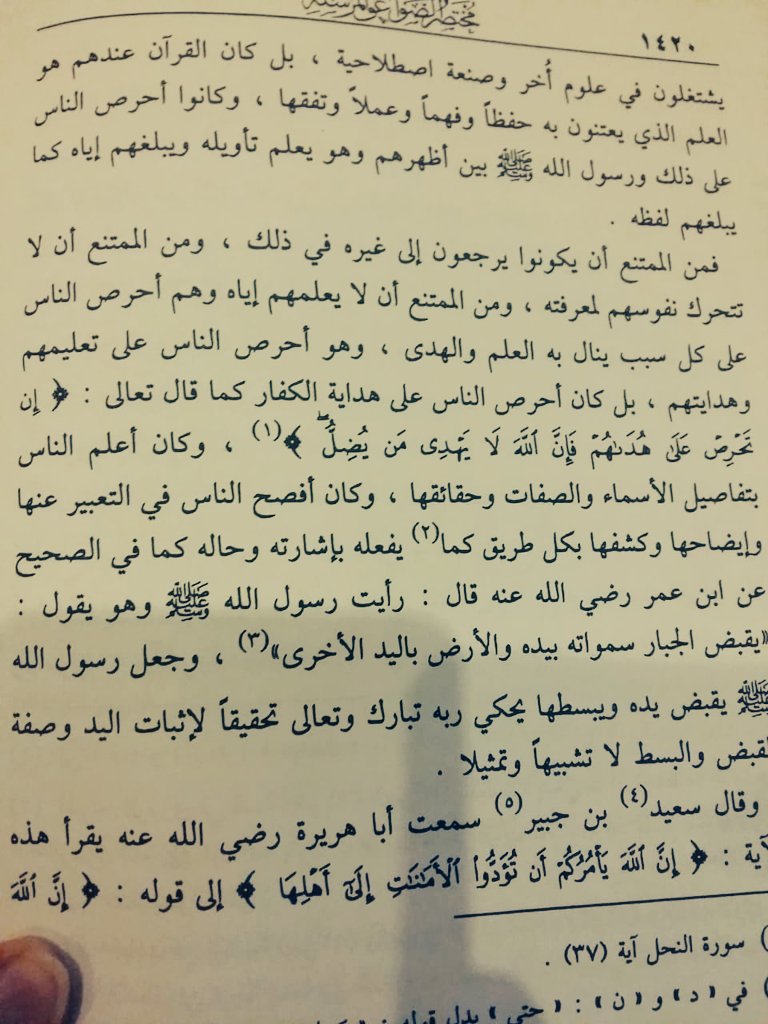 مختصر الصواعق المرسلة
١٤٢٠
يشتغلون في علوم أُخر وصنعة اصطلاحية ، بل كان القرآن عندهم هو
العلم الذي يعتنون به حفظاً وفهماً وعملاً وتفقها ، وكانوا أحرص الناس
على ذلك ورسول الله ﷺ بين أظهرهم وهو يعلم تأويله ويبلغهم إياه كما
يبلغهم لفظه .
فمن الممتنع أن يكونوا يرجعون إلى غيره في ذلك ، ومن الممتنع أن لا
تتحرك نفوسهم لمعرفته ، ومن الممتنع أن لا يعلمهم إياه وهم أحرص الناس
على كل سبب ينال به العلم والهدى ، وهو أحرص الناس على تعليمهم
وهدايتهم ، بل كان أحرص الناس على هداية الكفار كما قال تعالى : ﴿ إِن
تَحْرِصْ عَلَىٰ هُدَىٰهُمْ فَإِنَّ ٱللَّهَ لَا يَهْدِى مَن يُضِلُّ ۖ ﴾(١) ، وكان أعلم الناس
بتفاصيل الأسماء والصفات وحقائقها ، وكان أفصح الناس في التعبير عنها
وإيضاحها وكشفها بكل طريق كما(٢) يفعله بإشارته وحاله كما في الصحيح
عن ابن عمر رضي الله عنه قال : رأيت رسول الله ﷺ وهو يقول :
«يقبض الجبار سمواته بيده والأرض باليد الأخرى»(٣) ، وجعل رسول الله
ﷺ يقبض يده ويبسطها يحكي ربه تبارك وتعالى تحقيقاً لإثبات اليد وصفة
لقبض والبسط لا تشبيهاً وتمثيلا .
وقال سعيد(٤) بن جبير(٥) سمعت أبا هريرة رضي الله عنه يقرأ هذه
آية : ﴿ إِنَّ ٱللَّهَ يَأْمُرُكُمْ أَن تُؤَدُّوا۟ ٱلْأَمَـٰنَـٰتِ إِلَىٰٓ أَهْلِهَا ﴾ إلى قوله : ﴿ إِنَّ ٱللَّهَ
) سورة النحل آية (٣٧) .
) في « د » و « ن » : « حتى » بدل قوله :